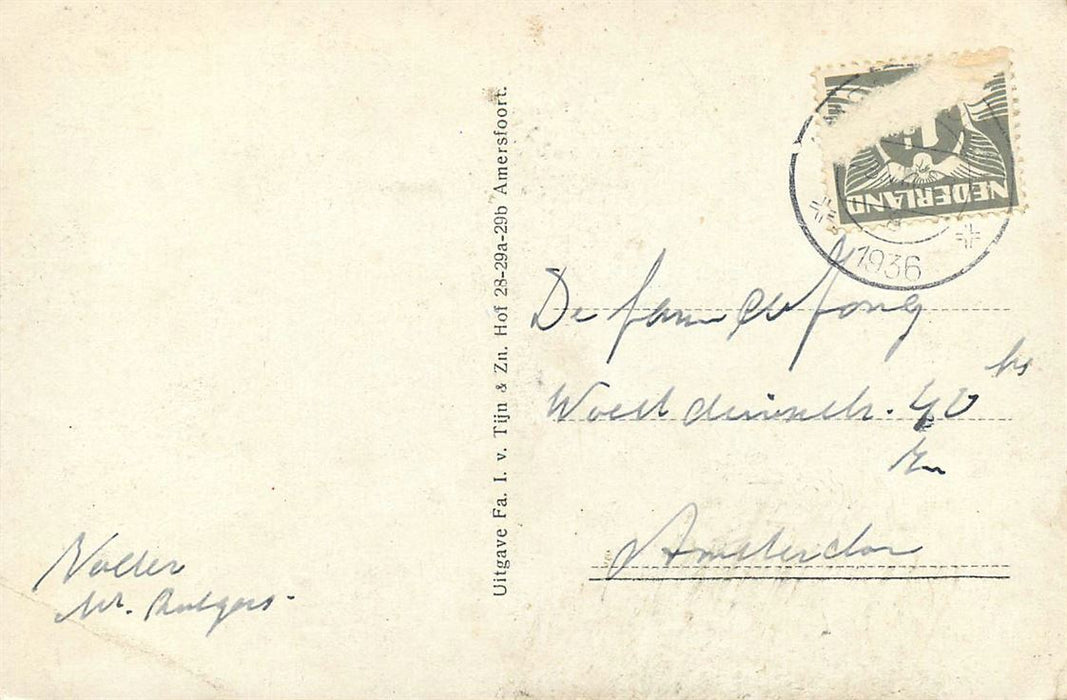 NEDERLAND
1936
Uitgave Fa. I. v. Tijn & Zn. Hof 28-29a-29b Amersfoort.
De fam de Jong
40 hs
Amsterdam
Mr. Rutgers